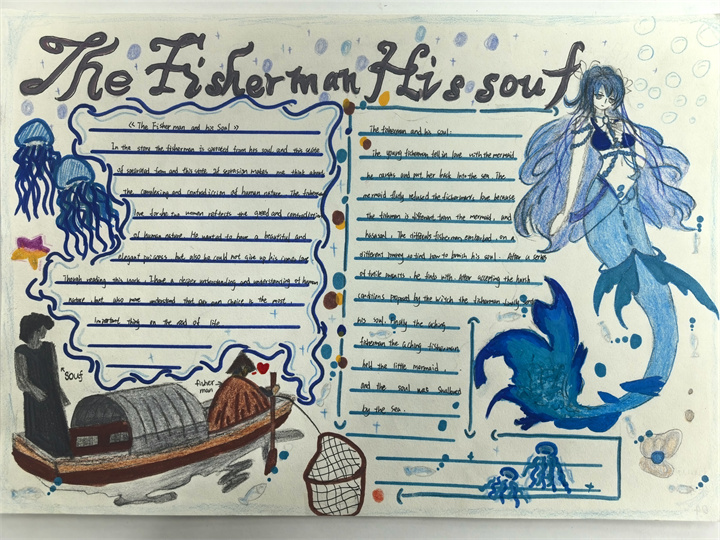 The Fisherman His soul
《The Fisherman and his Soul》
In the store the fisherman is from his soul, and this state
of from and this state of makes me think about
The complexing and of human nature. The fisherman
love for the two women reflects the greed and
of human nature. He wanted to have a beautiful and
elegant but also he could not give up his
Though reading this book, I have a deeper understanding and understanding of human
nature, but also more understand that our own choice is the most
important thing on the road of life
The fisherman and his soul:
The young fisherman fell in love with the mermaid
he caught and put her back into the sea. The
mermaid firmly refused the fisherman's love because
The fisherman is different from the mermaid, and
has a soul. The fisherman embarked on a
different journey to find how to banish his soul. After a series
of he find with after accepting the harsh
conditions proposed by the witch the fisherman
his soul. finally the aching
fisherman the aching fisherman
held the little mermaid
and the soul was swallowed
by the sea.
soul
fisher
man